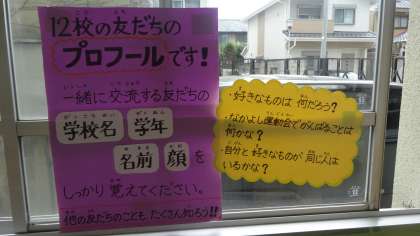 12校の友だちの
プロフールです!
一緒に交流する友だちの
学校名 学年
名前 顔を
しっかり覚えてください。
他の友だちのことも、たくさん知ろう!!
・好きなものは何だろう?
・なかよし運動会でがんばることは
何かな?
・自分と好きなものが同じ人は
いるかな?